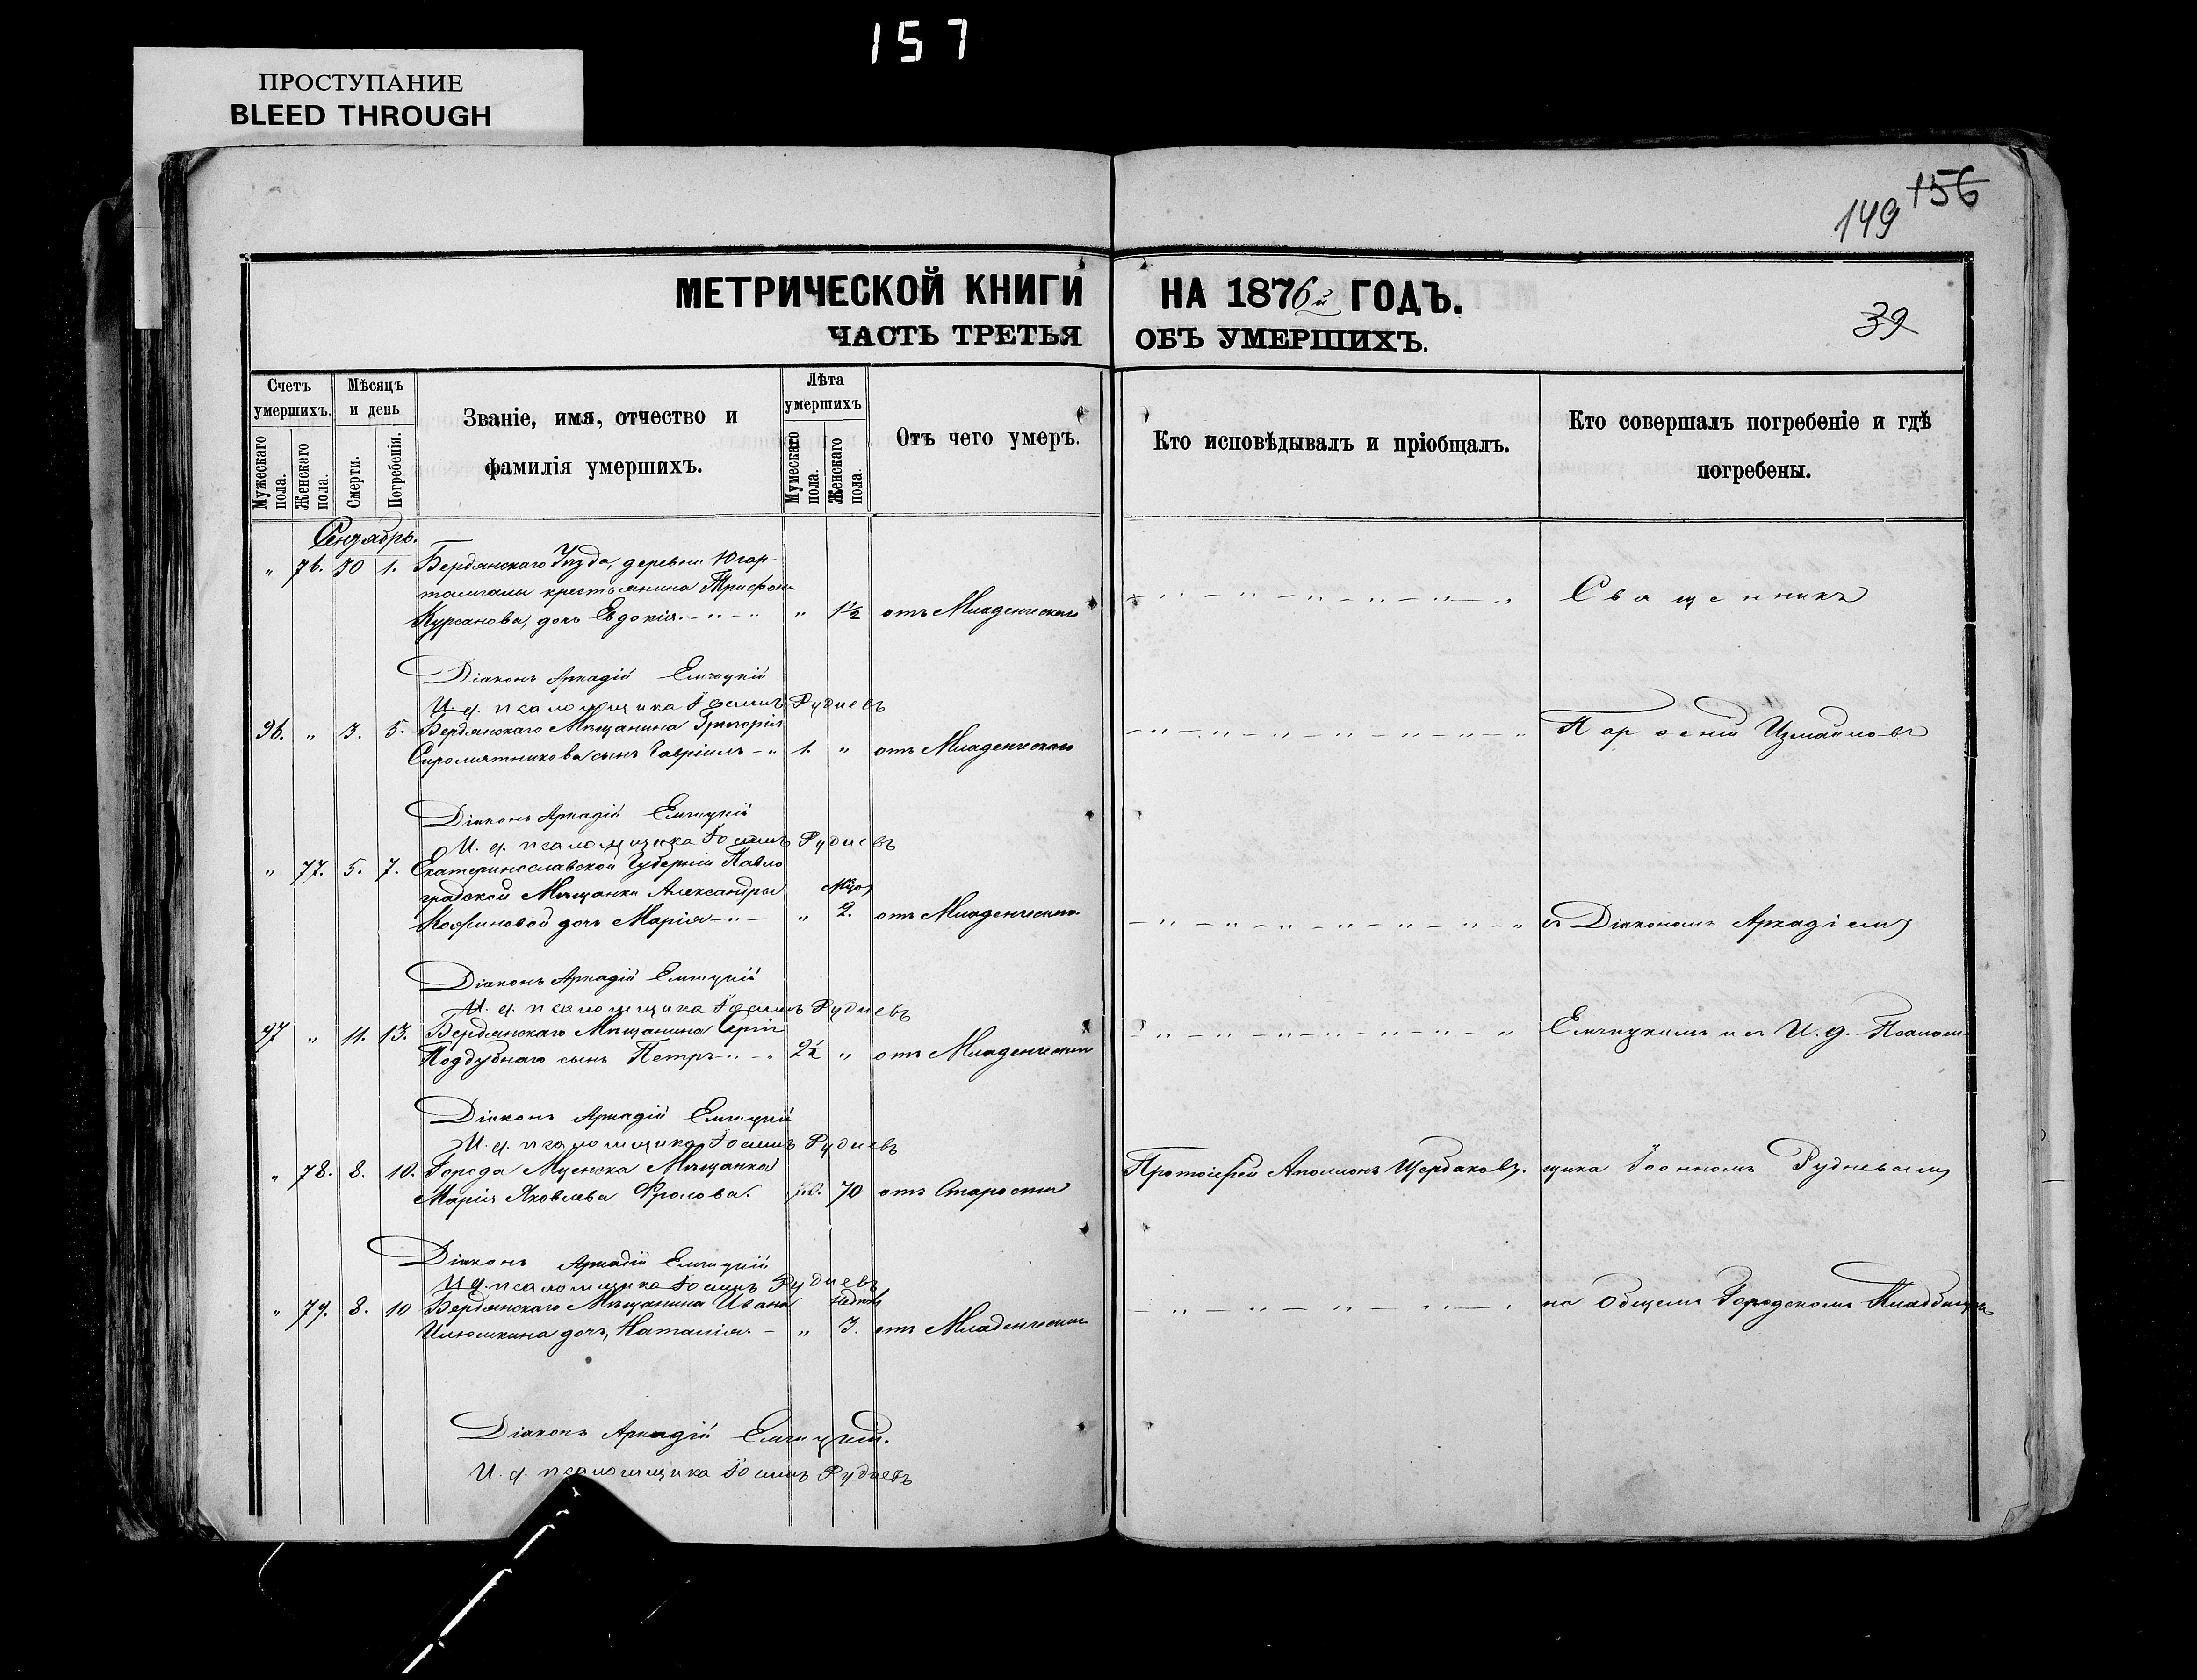 157
ПРОСТУПАНИЕ
BLEED THROUGH
149 156
МЕТРИЧЕСКОЙ КНИГИ НА 1876й ГОДЪ.
ЧАСТЬ ТРЕТЬЯ ОБЪ УМЕРШИХЪ.
39
Счетъ умершихъ.
Мужескаго пола.
Женскаго пола.
Мѣсяцъ и день
Смерти.
Погребенія.
Званіе, имя, отчество и фамилія умершихъ.
Лѣта умершихъ
Мужескаго пола.
Женскаго пола.
Отъ чего умеръ.
Кто исповѣдывалъ и пріобщалъ.
Кто совершалъ погребеніе и гдѣ погребены.
Сентябрь.
" 76. 30 1. Бердянскаго Уѣзда, деревни Югар-
тамгалы крестьянина Трифона
Курсанова, дочь Евдокія. " 1½ отъ Младенческаго
Священникъ
Діаконъ Аркадій Емчицкій
И. д. псаломщика Іоаннъ Рудневъ
96. " 3. 5. Бердянскаго Мѣщанина Григорія
Сыромятникова сынъ Гавріилъ " 1. " отъ Младенческаго
Парѳеній Измайловъ
Діаконъ Аркадій Емчицкій
И. д. псаломщика Іоаннъ Рудневъ
" 77. 5. 7. Екатеринославской Губерніи Павло
градской Мѣщанки Александры
дочь Марія " 2. отъ Младенческаго
съ Діакономъ Аркадіемъ
Діаконъ Аркадій Емчицкій
И. д. псаломщика Іоаннъ Рудневъ
97 " 11. 13. Бердянскаго Мѣщанина Сергія
Поддубнаго сынъ Петръ 2½ " отъ Младенческаго
Емчицкимъ и съ И. д. Псалом-
Діаконъ Аркадій Емчицкій
И. д. псаломщика Іоаннъ Рудневъ
" 78. 8. 10. Города Мценска Мѣщанка
Марія Яковлева Фролова. 70 отъ Старости
Протоіерей Аполлонъ Щербаковъ.
щика Іоанномъ Рудневымъ
Діаконъ Аркадій Емчицкій
И. д. псаломщика Іоаннъ Рудневъ
" 79. 8. 10 Бердянскаго Мѣщанина Ивана недѣль
Илюшкина дочь, Наталія. " 3. отъ Младенческаго
на Общемъ Городскомъ Кладбищѣ
Діаконъ Аркадій Емчицкій.
И. д. псаломщика Іоаннъ Рудневъ